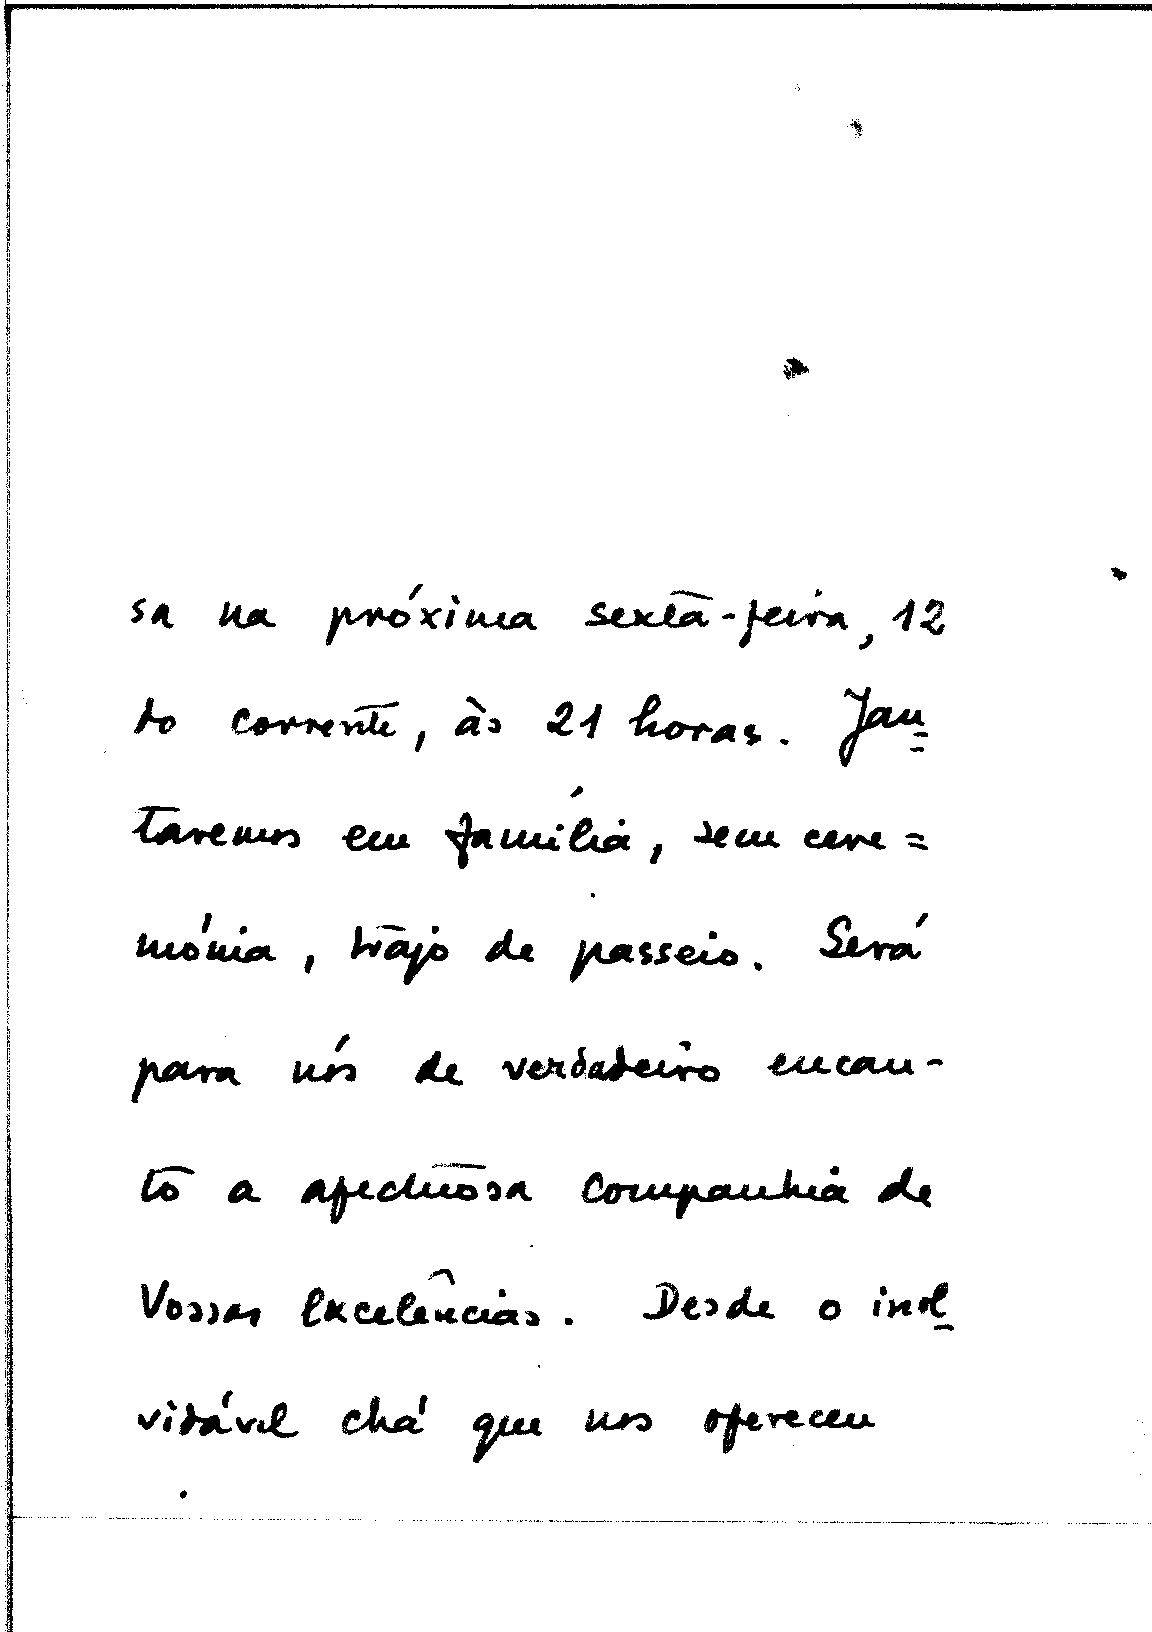 sa na próxima sexta-feira, 12
do corrente, às 21 horas. Jan=
taremos em família, sem cere=
mónia, trajo de passeio. Será
para nós de verdadeiro encan-
to a afectuosa companhia de
Vossas Excelências. Desde o inol=
vidável chá que nos ofereceu